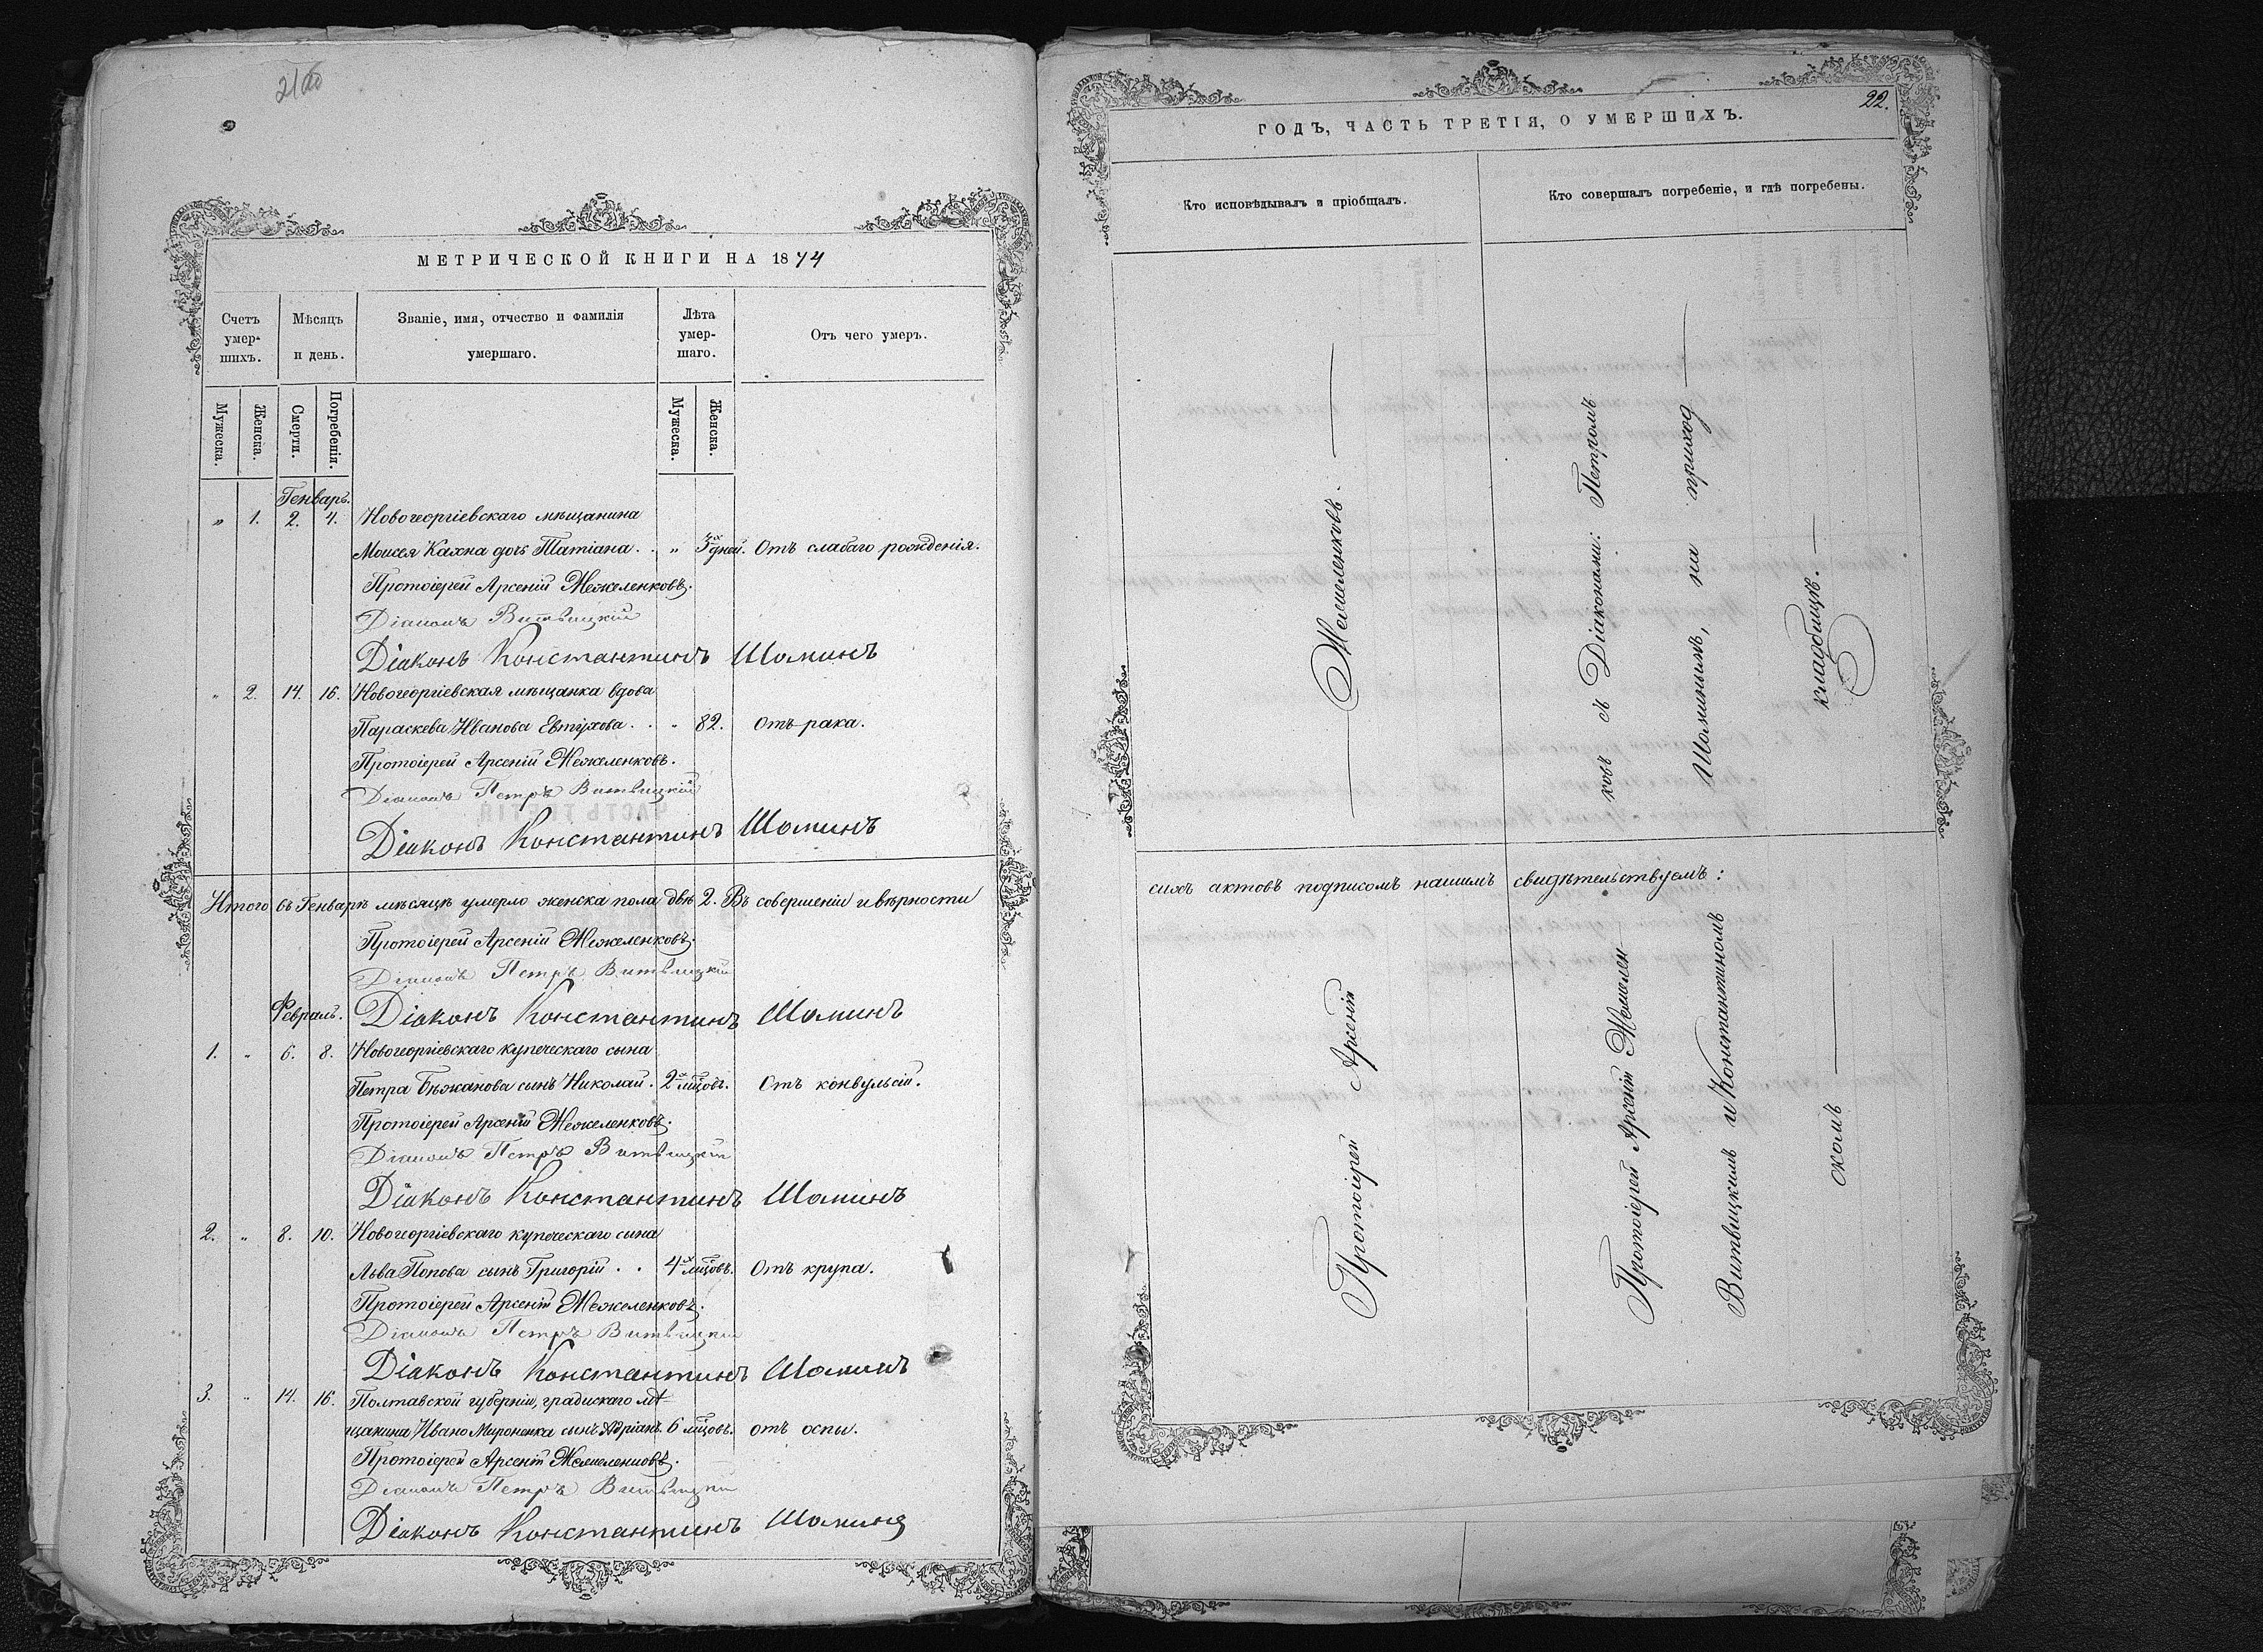 МЕТРИЧЕСКОЙ КНИГИ НА 1874
Счетъ умер-шихъ.
Мѣсяцъ и день.
Званіе, имя, отчество и фамилія умершаго.
Лѣта умер-шаго.
Отъ чего умеръ.
Мужеска.
Женска.
Смерти.
Погребенія.
Мужеска.
Женска.
Генварь.
„ 1. 2. 4. Новогеоргіевскаго мѣщанина
Моисея Кахна дочь Татіана . . „ дней. Отъ слабаго рожденія.
Протоіерей Арсеній Межеленковъ.
Діаконъ Витвицкій
Діаконъ Константинъ Шаминъ
„ 2. 14. 16. Новогеоргіевская мѣщанка вдова
Параскева Иванова Евтухова . . „ 82. отъ рака.
Протоіерей Арсеній Межеленковъ.
Діаконъ Петръ Витвицкій
Діаконъ Константинъ Шаминъ
Итого въ Генварѣ мѣсяцѣ умерло женска пола двѣ 2. Въ совершеніи и вѣрности
Протоіерей Арсеній Межеленковъ.
Діаконъ Петръ Витвицкій
Февраль. Діаконъ Константинъ Шаминъ
1. „ 6. 8. Новогеоргіевскаго купеческаго сына
Петра Бѣжанова сынъ Николай . 2 х мѣцовъ. Отъ конвульсій.
Протоіерей Арсеній Межеленковъ.
Діаконъ Петръ Витвицкій
Діаконъ Константинъ Шаминъ
2. „ 8. 10. Новогеоргіевскаго купеческаго сына
Льва Попова сынъ Григорій . . 4 х мѣцовъ. Отъ крупа.
Протоіерей Арсеній Межеленковъ.
Діаконъ Петръ Витвицкій
Діаконъ Константинъ Шаминъ
3. „ 14. 16. Полтавской губерніи, градискаго мѣ-
щанина Ивана Мироненка сынъ Адріанъ. 6 мѣцовъ. отъ оспы.
Протоіерей Арсеній Межеленковъ.
Діаконъ Петръ Витвицкій
Діаконъ Константинъ Шаминъ
22.
ГОДЪ, ЧАСТЬ ТРЕТІЯ, О УМЕРШИХЪ.
Кто исповѣдывалъ и пріобщалъ.
Кто совершалъ погребеніе, и гдѣ погребены.
сихъ актовъ подписомъ нашимъ свидѣтельствуемъ:
Протоіерей Арсеній Межеленковъ.
Протоіерей Арсеній Межелен
ковъ съ Діаконами: Петромъ
Витвицкимъ и Константиномъ
Шаминымъ, на приход
скомъ кладбищѣ.